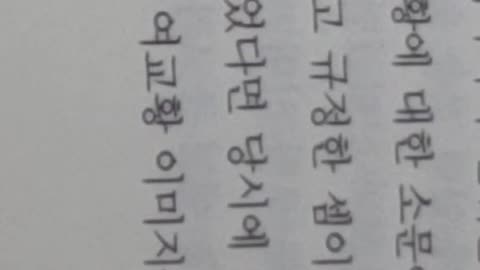 황에 대한 소문
고 규정한 셈이
었다면 당시에
여교황 이미지